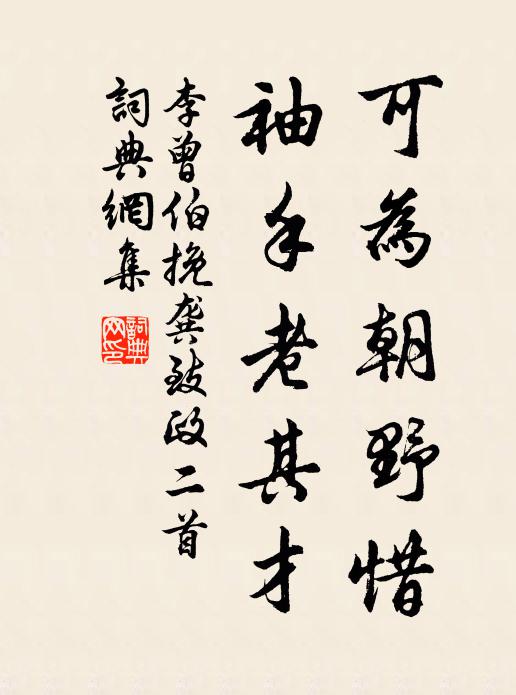 可為朝野惜
袖手老其才
李曾伯挽龔致政二首
詞典網集
詞典網印